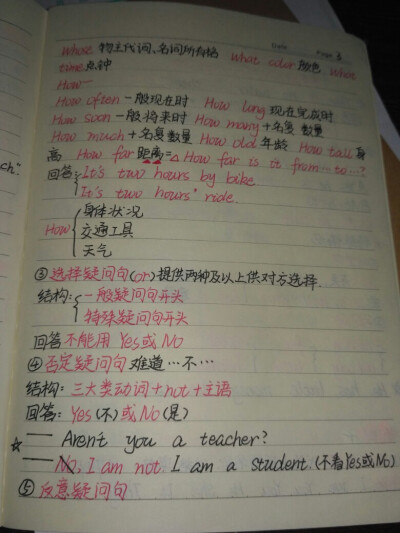 Date. Page 3
Whose 物主代词、名词所有格 What color 颜色 What
time 点钟
How…
How often 一般现在时 How long 现在完成时
How soon 一般将来时 How many + 名复 数量
How much + 名复 数量 How old 年龄 How tall 身
高 How far 距离 = △ How far is it from … to …?
回答 It's two hours by bike.
It's two hours' ride.
身体状况
How 交通工具
天气
③ 选择疑问句 (or) 提供两种及以上供对方选择.
结构: 一般疑问句开头
特殊疑问句开头
回答不能用 Yes 或 No
④ 否定疑问句 难道…不…
结构: 三大类动词 + not + 主语
回答: Yes (不) 或 No (是)
☆ — Aren't you a teacher?
— No, I am not. I am a student. (不看 Yes 或 No)
⑤ 反意疑问句
ch."